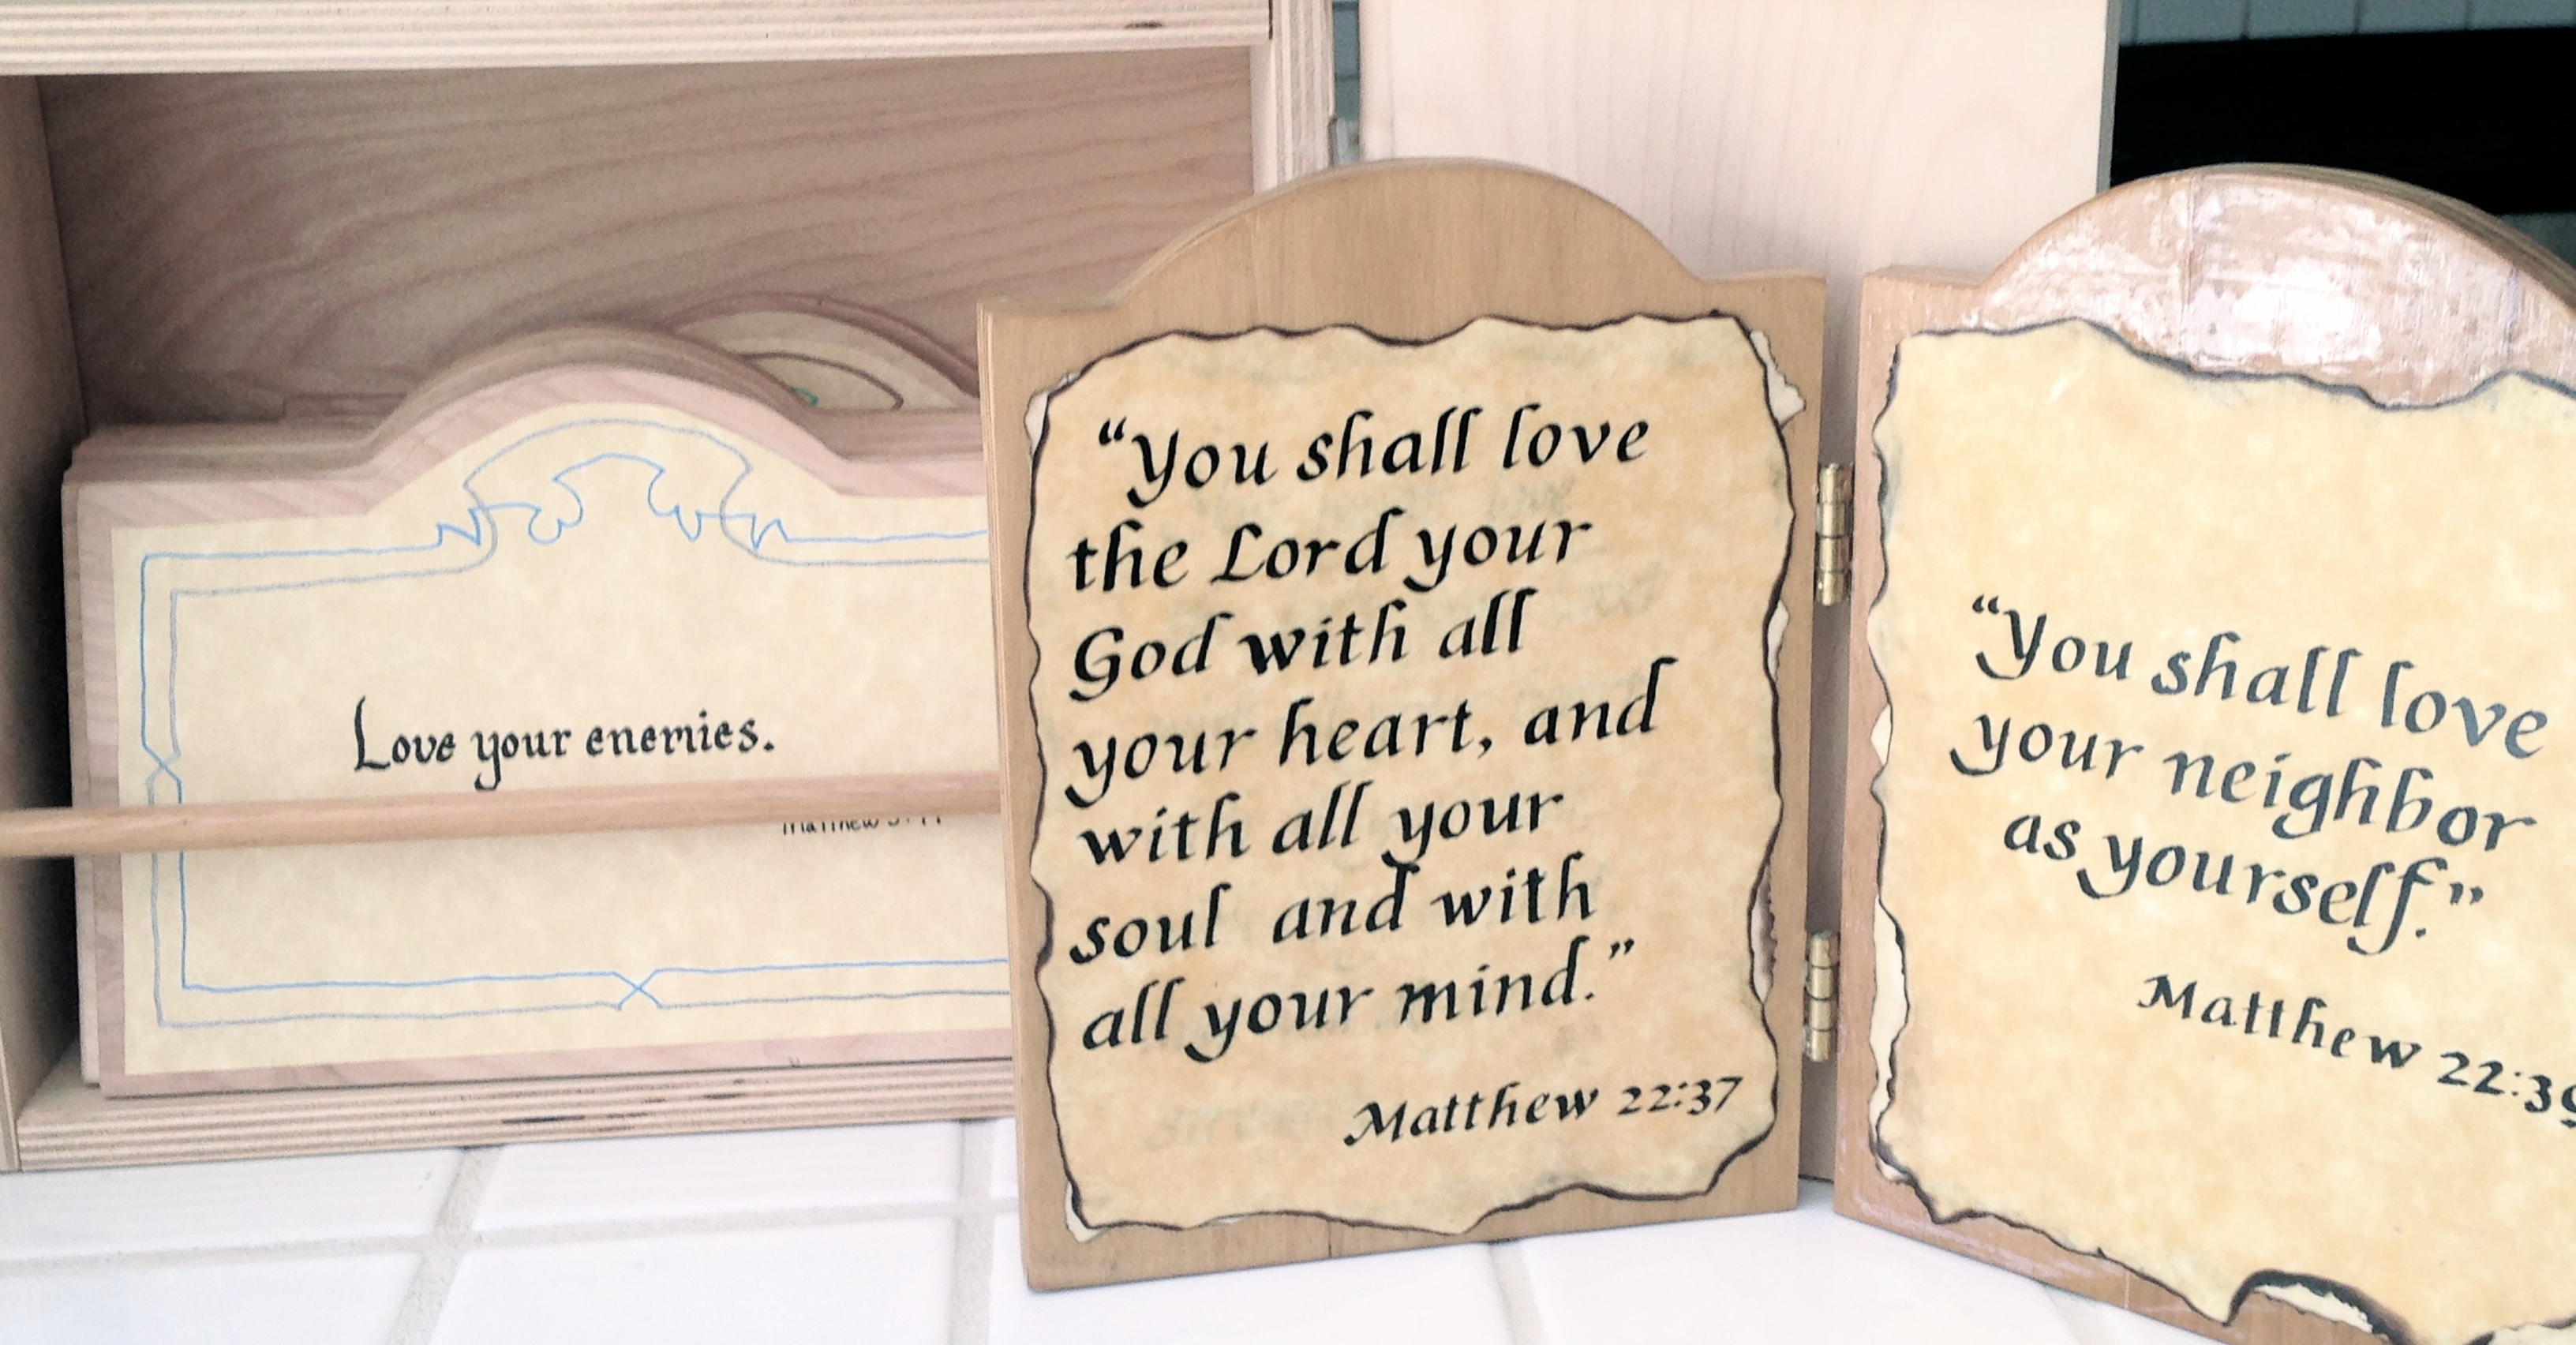 Love your enemies.
Matthew 5:44
“You shall love
the Lord your
God with all
your heart, and
with all your
soul and with
all your mind.”
Matthew 22:37
“You shall love
your neighbor
as yourself.”
Matthew 22:39